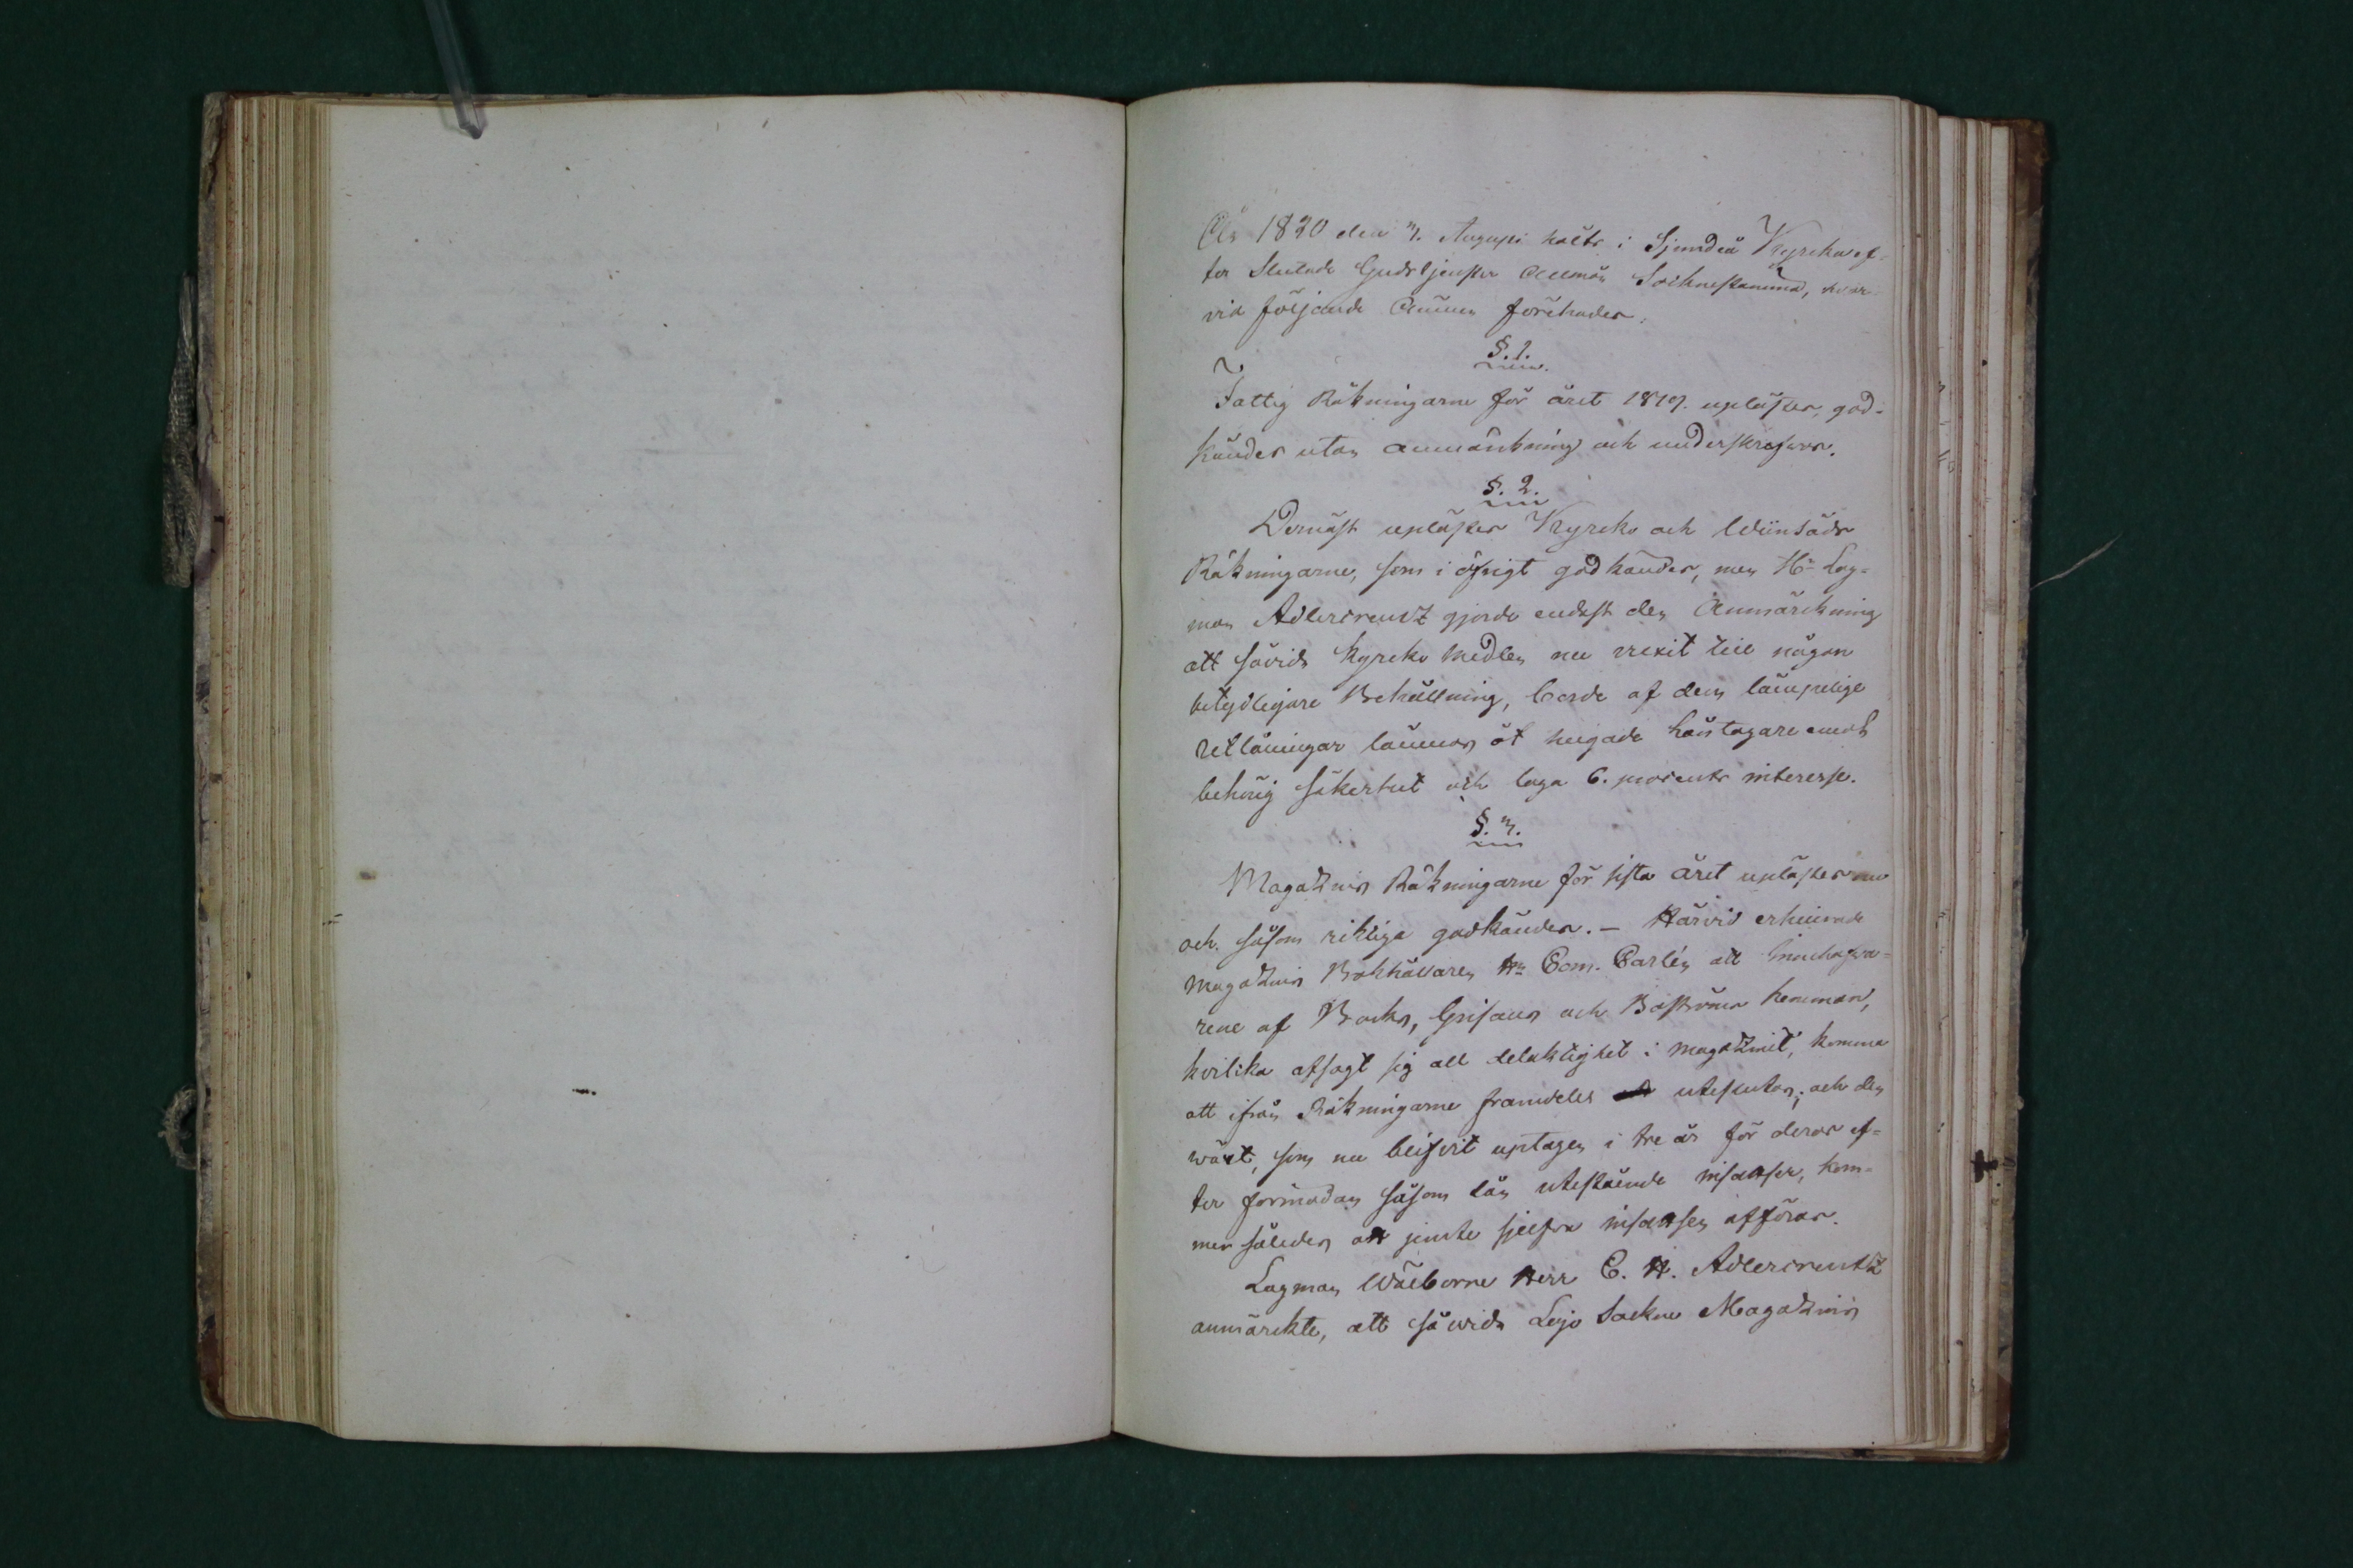 År 1820 den 3. Augusti hölts i Sjundeå Kyrka ef-
ter slutad Gudstjenster allmän Socknestämma, hvar-
vid följande ämnen förehades:
§. 1.
Fattig Räkningarne för året 1819. uplästes, god-
kändes utan anmärkning och underskrefwos.
§. 2.
Dernäst uplästes Kyrcko och Winsäds
Räkningarne, som i öfrigt godkändes, men Hr Lag-
man Adlercreutz gjorde endast den Anmärckning
att såvida Kyrcko Medlen nu vexit till någon
betydligare Behållning, borde af dem lämpelige
utlåningar lämnas åt hugade låntagare emot
behörig säkerhet och laga 6. procents interesse.
§. 3.
Magazins Räkningarne för sista året uplästes nu
och såsom riktiga godkändes. – Härvid erhindrade
Magazins Bokhållaren Hr Com. Carlén att Innehafva-
rene af Backs, Grisans och Boströms hemman,
hvilka afsagt sig all delaktighet i Magazinet, komma
att ifrån Räkningarne framdeles uteslutas; och den
växt, som nu blifvit uptagen i tre år för deras ef-
ter förmodan såsom lån utestående insatser, kom-
mer således at jemte sjelfva insatsen afföras.
Lagman Wälborne Herr C. H. Adlercreutz
anmärckte, att såwida Lojo Sockne Magazins